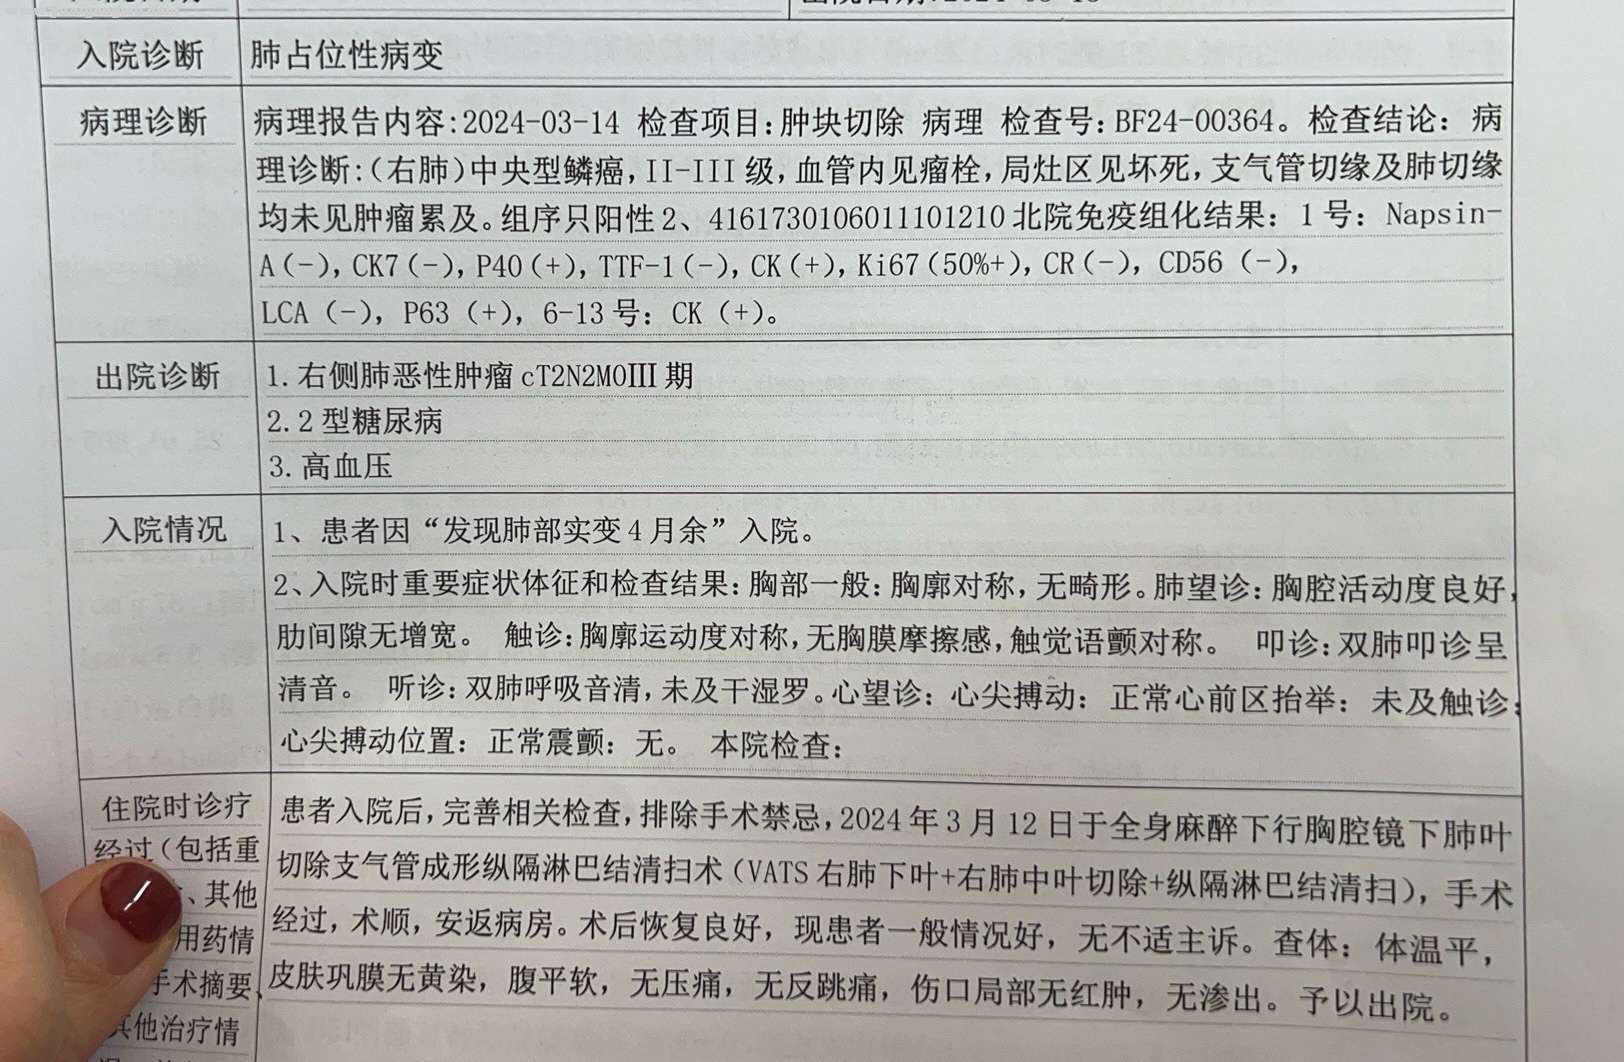 入院诊断 肺占位性病变
病理诊断 病理报告内容:2024-03-14 检查项目:肿块切除 病理 检查号:BF24-00364。检查结论: 病
理诊断:(右肺)中央型鳞癌,II-III 级,血管内见瘤栓,局灶区见坏死,支气管切缘及肺切缘
均未见肿瘤累及。组序只阳性 2、4161730106011101210 北院免疫组化结果: 1 号: Napsin-
A(-),CK7(-),P40(+),TTF-1(-),CK(+),Ki67(50%+),CR(-), CD56 (-),
LCA (-), P63 (+), 6-13 号: CK (+)。
出院诊断 1.右侧肺恶性肿瘤 cT2N2M0III 期
2.2 型糖尿病
3.高血压
入院情况 1、患者因“发现肺部实变 4 月余”入院。
2、入院时重要症状体征和检查结果:胸部一般:胸廓对称,无畸形。肺望诊:胸腔活动度良好,
肋间隙无增宽。 触诊:胸廓运动度对称,无胸膜摩擦感,触觉语颤对称。 叩诊:双肺叩诊呈
清音。 听诊:双肺呼吸音清,未及干湿罗。心望诊: 心尖搏动: 正常心前区抬举: 未及触诊:
心尖搏动位置: 正常震颤: 无。 本院检查:
住院时诊疗 患者入院后,完善相关检查,排除手术禁忌,2024 年 3 月 12 日于全身麻醉下行胸腔镜下肺叶
经过(包括重 切除支气管成形纵隔淋巴结清扫术(VATS 右肺下叶+右肺中叶切除+纵隔淋巴结清扫),手术
、其他 经过,术顺,安返病房。术后恢复良好,现患者一般情况好,无不适主诉。查体: 体温平,
用药情 皮肤巩膜无黄染,腹平软,无压痛,无反跳痛,伤口局部无红肿,无渗出。予以出院。
手术摘要、
其他治疗情